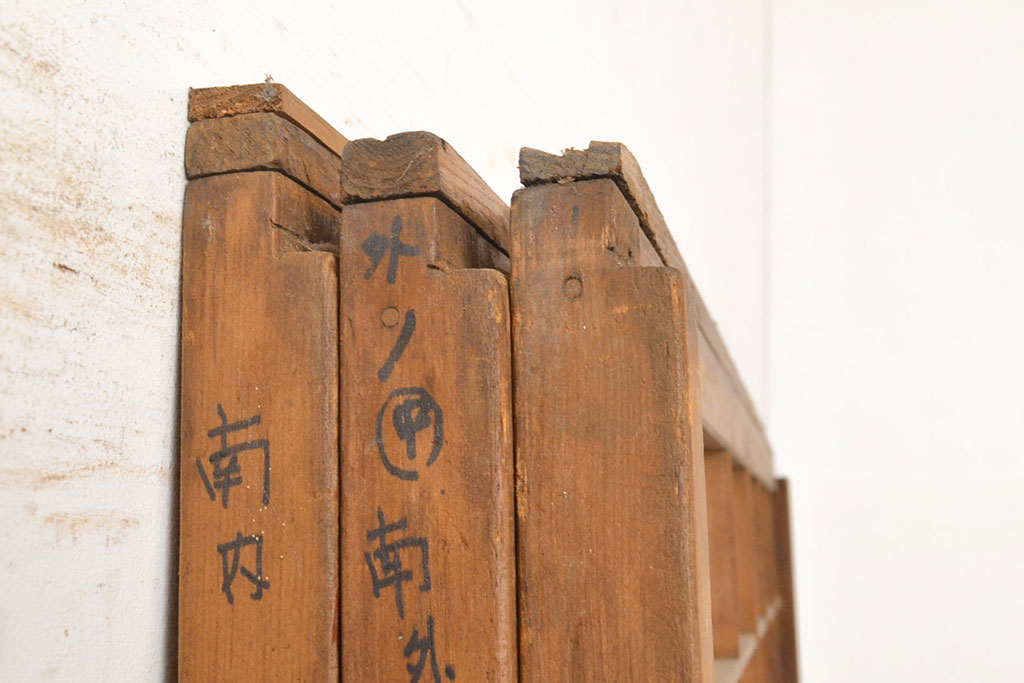 南内
外ノ㊥南外